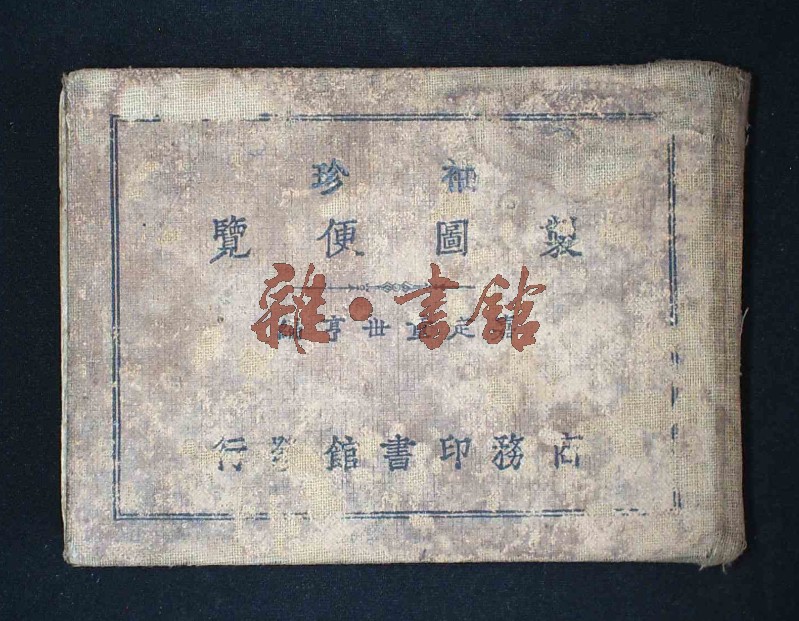 袖珍
製圖便覽
嘉定宜世亨編
商務印書館發行
雜·書館